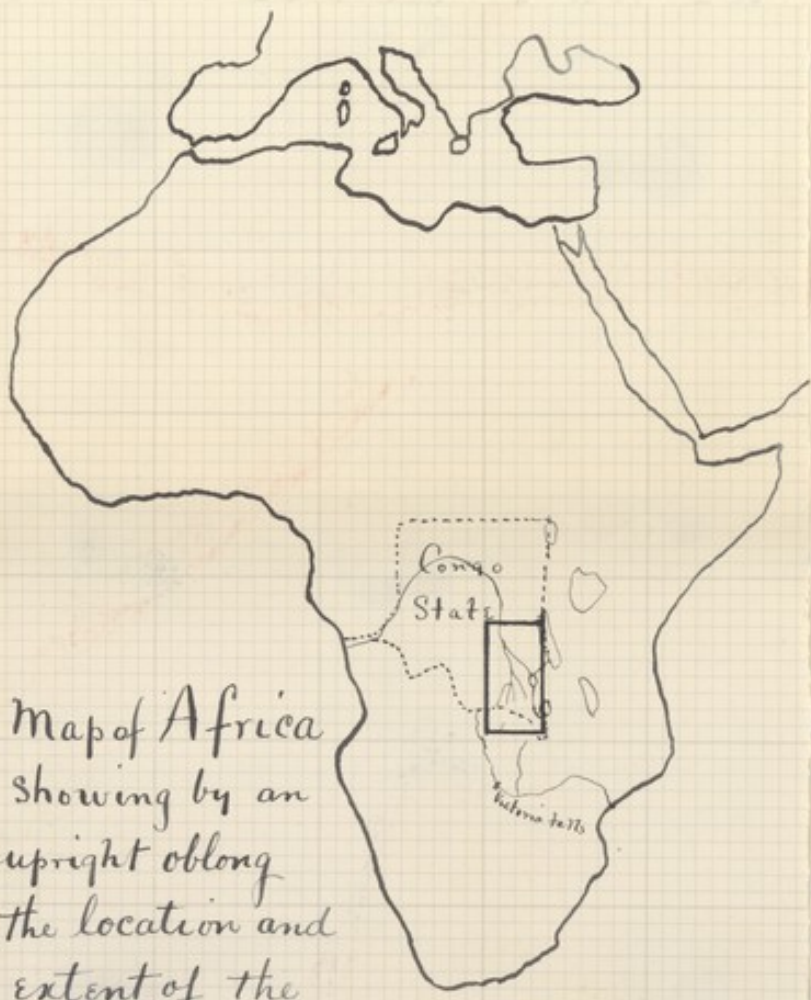 Congo
State
Victoria falls
Map of Africa
showing by an
upright oblong
the location and
extent of the